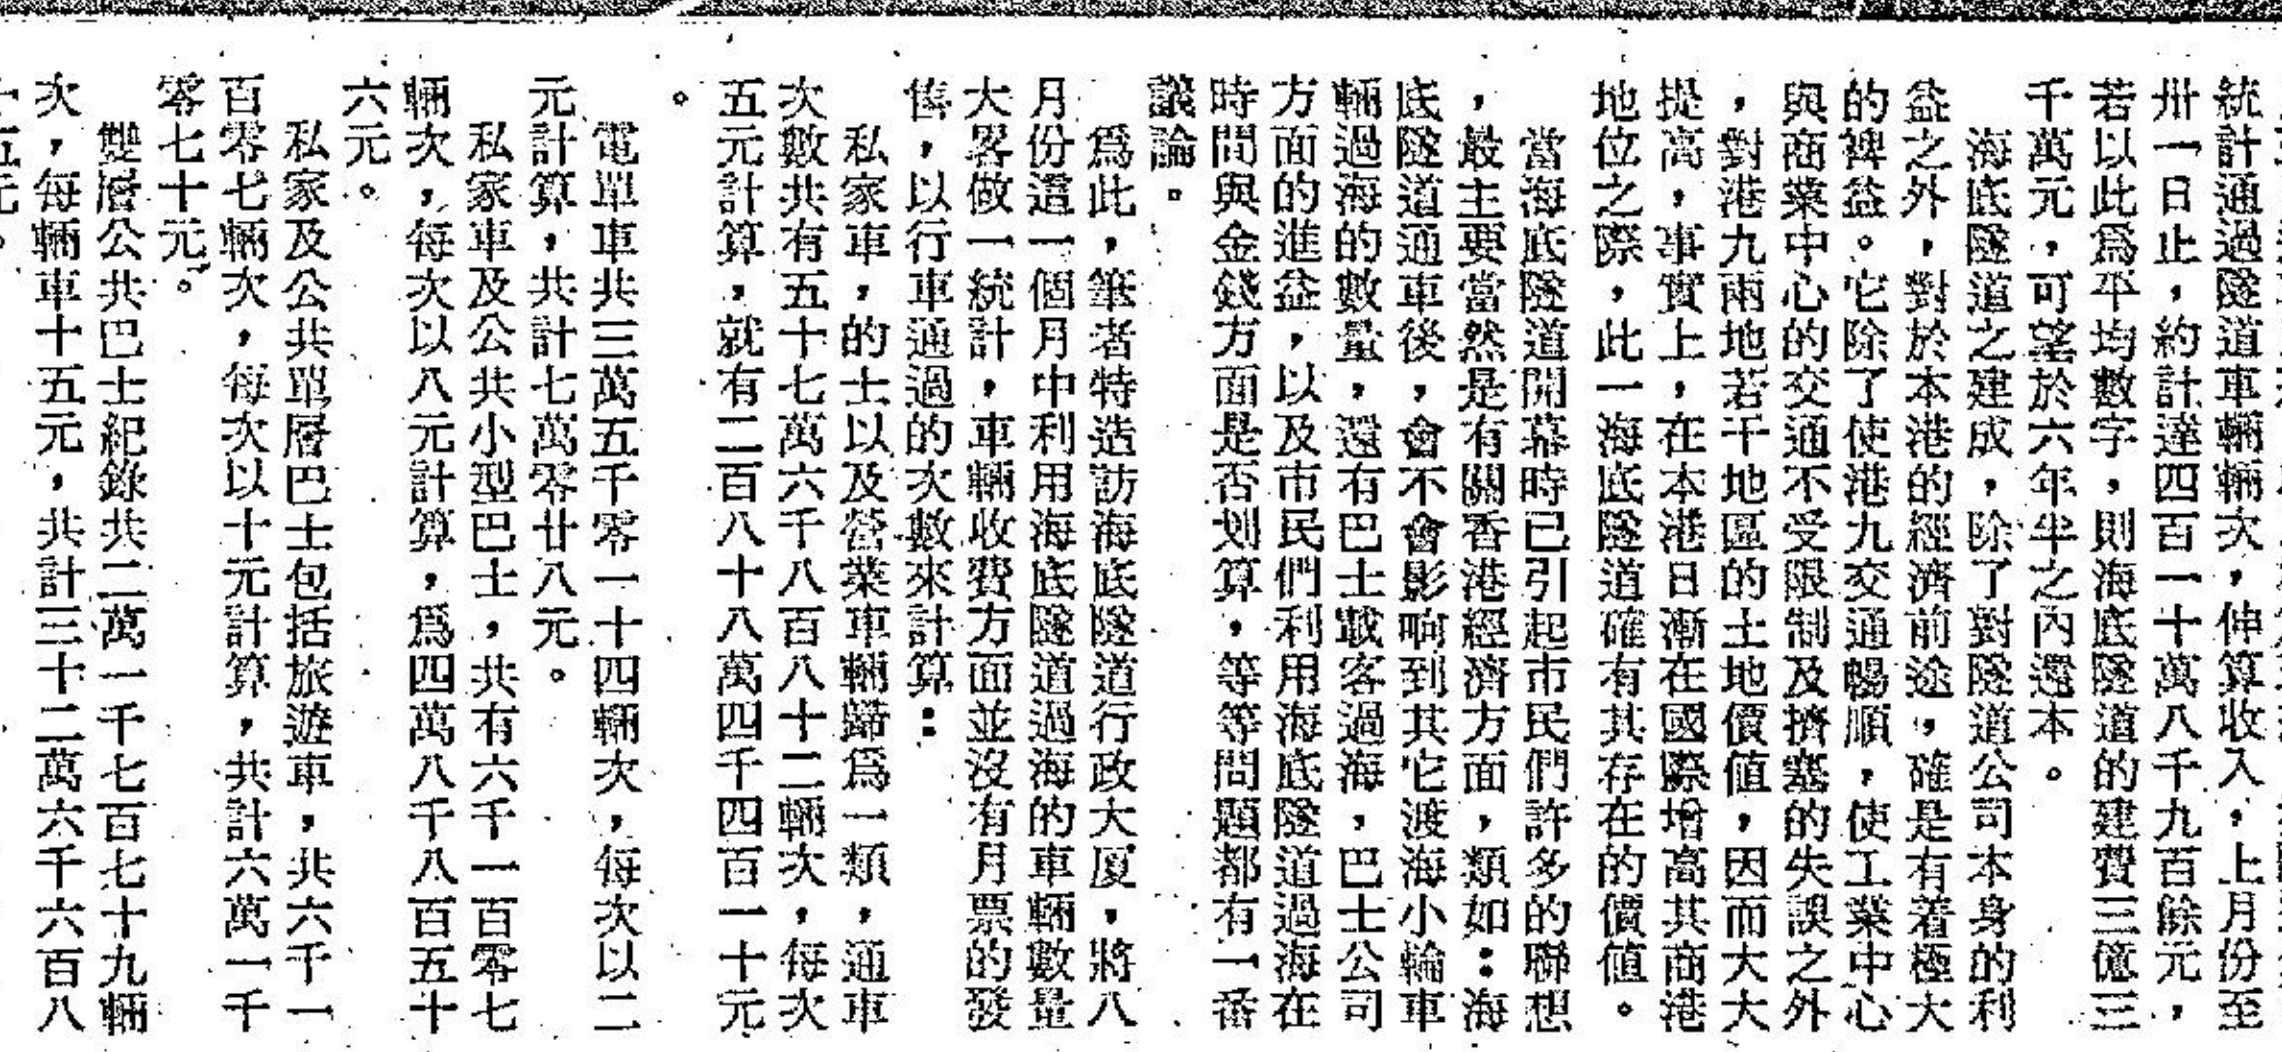 統計通過隧道車輛輛次，伸算收入，上月份至
卅一日止，約計達四百一十萬八千九百餘元，
若以此爲平均數字，則海底隧道的建費三億三
千萬元，可望於六年半之內還本。
海底隧道之建成，除了對隧道公司本身的利
益之外，對於本港的經濟前途，確是有着極大
的裨益。它除了使港九交通暢順，使工業中心
與商業中心的交通不受限制及擠塞的失誤之外
，對港九兩地若干地區的土地價值，因而大大
提高，事實上，在本港日漸在國際增高其商港
地位之際，此一海底隧道確有其存在的價值。
當海底隧道開幕時已引起市民們許多的聯想
，最主要當然是有關香港經濟方面，類如：海
底隧道通車後，會不會影响到其它渡海小輪車
輛過海的數量，還有巴士載客過海，巴士公司
方面的進益，以及市民們利用海底隧道過海在
時間與金錢方面是否划算，等等問題都有一番
議論。
爲此，筆者特造訪海底隧道行政大厦，將八
月份這一個月中利用海底隧道過海的車輛數量
大畧做一統計，車輛收費方面並沒有月票的發
售，以行車通過的次數來計算：
私家車，的士以及營業車輛歸爲一類，通車
次數共有五十七萬六千八百八十二輛次，每次
五元計算，就有二百八十八萬四千四百一十元
。
電單車共三萬五千零一十四輛次，每次以二
元計算，共計七萬零廿八元。
私家車及公共小型巴士，共有六千一百零七
輛次，每次以八元計算，爲四萬八千八百五十
六元。
私家及公共單層巴士包括旅遊車，共六千一
百零七輛次，每次以十元計算，共計六萬一千
零七十元。
雙層公共巴士紀錄共二萬一千七百七十九輛
次，每輛車十五元，共計三十二萬六千六百八
十五元。